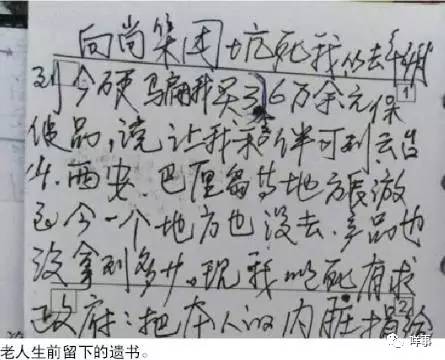 向尚集团坑死我从去年
到今硬骗我买了6万余元保
健品,说让我和老伴可到云台
山.西安.巴厘岛等地方旅游
至今一个地方也没去.产品也
没拿到多少。现我以死有求
政府:把本人的内脏捐给
1
2
老人生前留下的遗书。